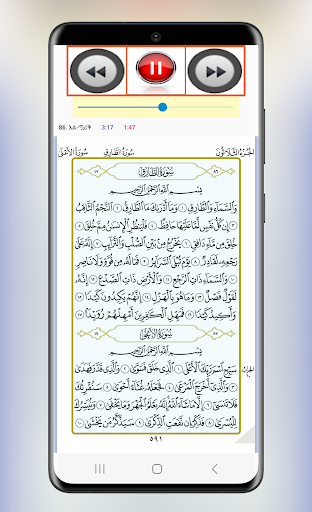 86. 3:17 1:47
الجزء الثلاثون سورة الطارق سورة الأعلى
٨٦ سُورَةُ الطَّارِقِ ١٧
بِسْمِ ٱللَّهِ ٱلرَّحْمَٰنِ ٱلرَّحِيمِ
وَٱلسَّمَآءِ وَٱلطَّارِقِ ١ وَمَآ أَدْرَىٰكَ مَا ٱلطَّارِقُ ٢ ٱلنَّجْمُ ٱلثَّاقِبُ
٣ إِن كُلُّ نَفْسٍ لَّمَّا عَلَيْهَا حَافِظٌ ٤ فَلْيَنظُرِ ٱلْإِنسَٰنُ مِمَّ خُلِقَ ٥
خُلِقَ مِن مَّآءٍ دَافِقٍ ٦ يَخْرُجُ مِنۢ بَيْنِ ٱلصُّلْبِ وَٱلتَّرَآئِبِ ٧ إِنَّهُۥ عَلَىٰ
رَجْعِهِۦ لَقَادِرٌ ٨ يَوْمَ تُبْلَى ٱلسَّرَآئِرُ ٩ فَمَا لَهُۥ مِن قُوَّةٍ وَلَا نَاصِرٍ
١٠ وَٱلسَّمَآءِ ذَاتِ ٱلرَّجْعِ ١١ وَٱلْأَرْضِ ذَاتِ ٱلصَّدْعِ ١٢ إِنَّهُۥ
لَقَوْلٌ فَصْلٌ ١٣ وَمَا هُوَ بِٱلْهَزْلِ ١٤ إِنَّهُمْ يَكِيدُونَ كَيْدًا ١٥
وَأَكِيدُ كَيْدًا ١٦ فَمَهِّلِ ٱلْكَٰفِرِينَ أَمْهِلْهُمْ رُوَيْدًۢا ١٧
٨٧ سُورَةُ الأَعْلَىٰ ١٩
بِسْمِ ٱللَّهِ ٱلرَّحْمَٰنِ ٱلرَّحِيمِ
سَبِّحِ ٱسْمَ رَبِّكَ ٱلْأَعْلَى ١ ٱلَّذِى خَلَقَ فَسَوَّىٰ ٢ وَٱلَّذِى قَدَّرَ فَهَدَىٰ
٣ وَٱلَّذِىٓ أَخْرَجَ ٱلْمَرْعَىٰ ٤ فَجَعَلَهُۥ غُثَآءً أَحْوَىٰ ٥ سَنُقْرِئُكَ
فَلَا تَنسَىٰٓ ٦ إِلَّا مَا شَآءَ ٱللَّهُ إِنَّهُۥ يَعْلَمُ ٱلْجَهْرَ وَمَا يَخْفَىٰ ٧ وَنُيَسِّرُكَ
لِلْيُسْرَىٰ ٨ فَذَكِّرْ إِن نَّفَعَتِ ٱلذِّكْرَىٰ ٩ سَيَذَّكَّرُ مَن يَخْشَىٰ ١٠
٥٩١